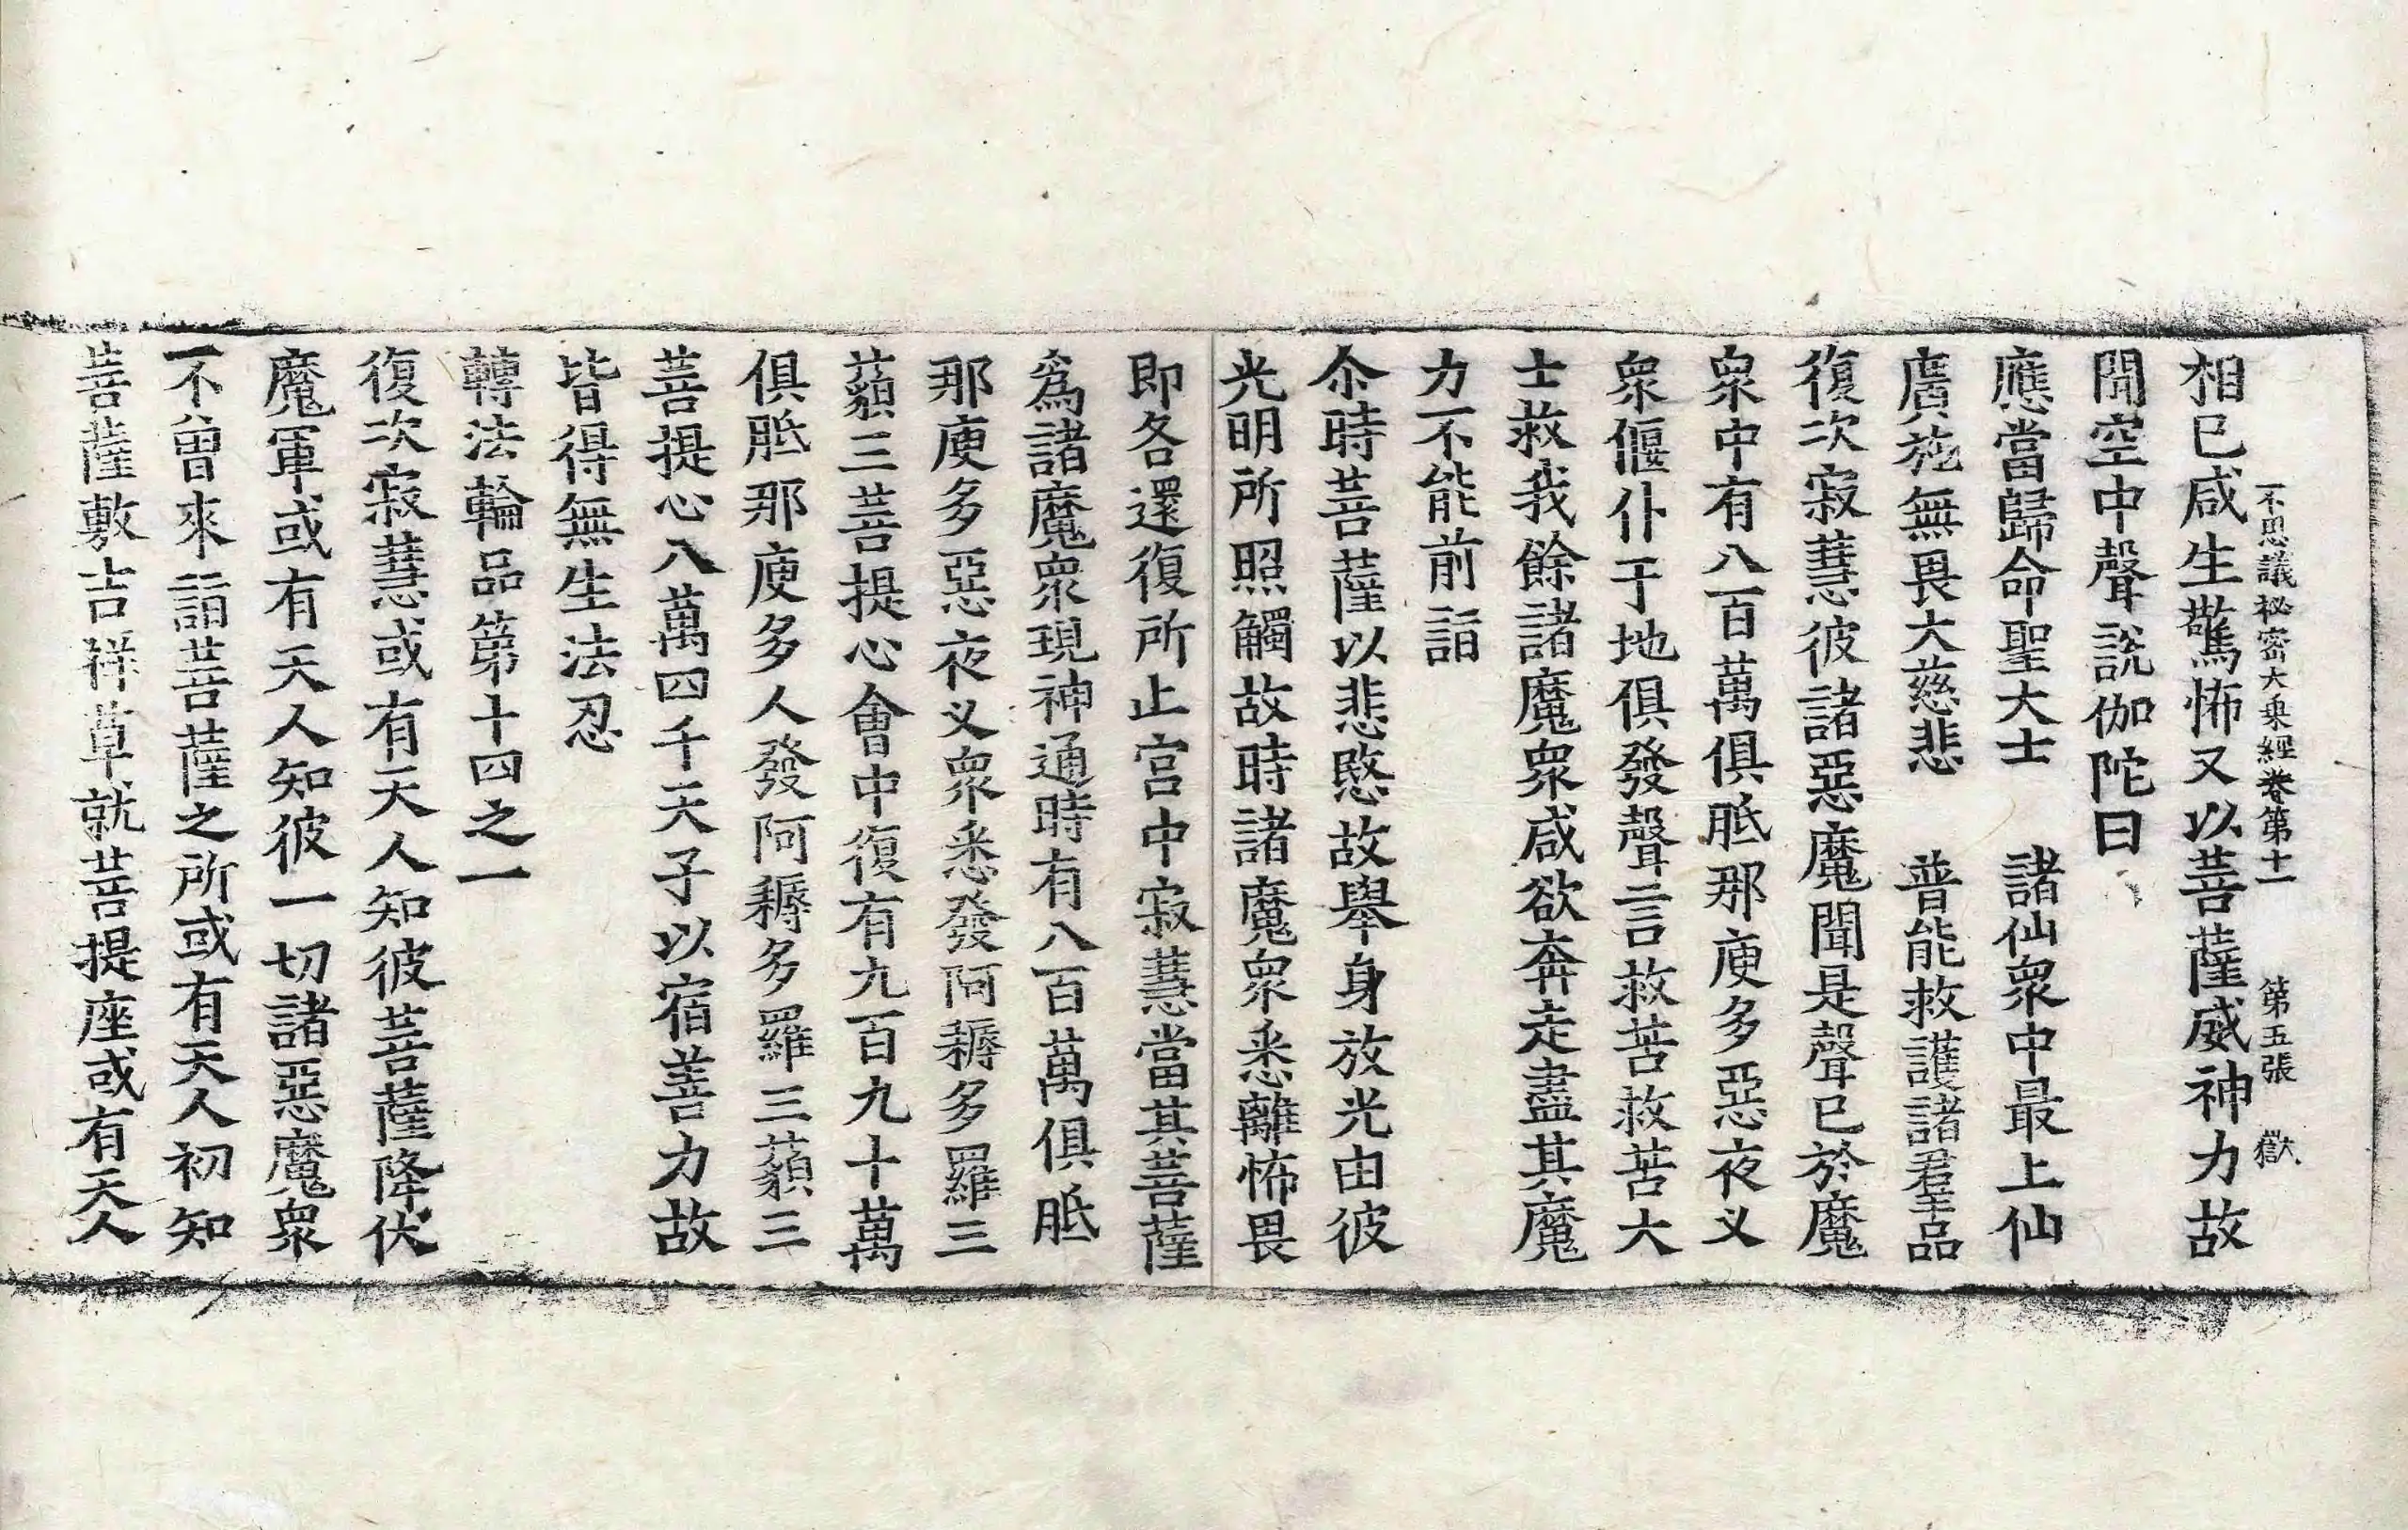 不思議祕密大乘經卷第十一 第五張 獄
相已咸生驚怖又以菩薩威神力故
聞空中聲說伽陀曰
應當歸命聖大士 諸仙眾中最上仙
廣施無畏大慈悲 普能救護諸羣品
復次寂慧彼諸惡魔聞是聲已於魔
眾中有八百萬俱胝那庾多惡夜叉
眾偃仆于地俱發聲言救苦救苦大
士救我餘諸魔眾咸欲奔走盡其魔
力不能前詣
尒時菩薩以悲愍故舉身放光由彼
光明所照觸故時諸魔眾悉離怖畏
即各還復所止宮中寂慧當其菩薩
為諸魔眾現神通時有八百萬俱胝
那庾多惡夜叉眾悉發阿耨多羅三
藐三菩提心會中復有九百九十萬
俱胝那庾多人發阿耨多羅三藐三
菩提心八萬四千天子以宿善力故
皆得無生法忍
轉法輪品第十四之一
復次寂慧或有天人知彼菩薩降伏
魔軍或有天人知彼一切諸惡魔眾
不曾來詣菩薩之所或有天人初知
菩薩敷吉祥草就菩提座或有天人